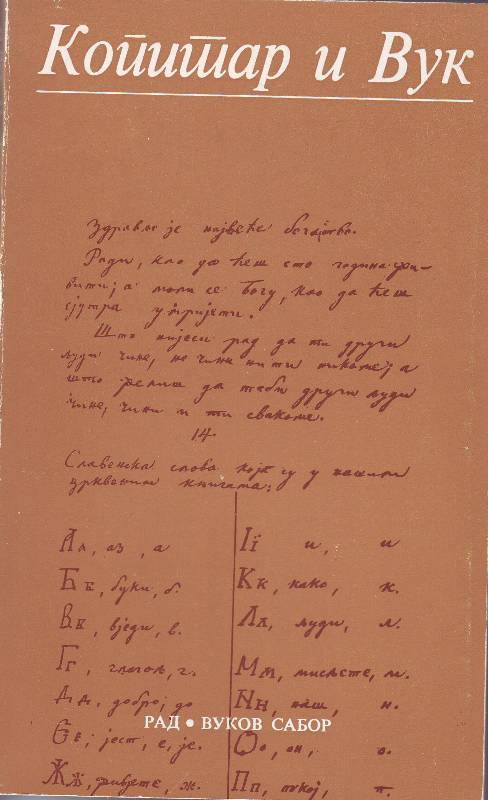 Копитар и Вук
Здравље је највеће богатство.
Ради, као да ћеш сто година жи-
вити; а моли се Богу, као да ћеш
сјутра умријети.
Што нијеси рад да ти други
људи чине, не чини ни ти никоме; а
што желиш да теби други људи
чине, чини и ти свакоме.
14
Славенска слова која су у нашим
црквеним књигама:
Аа, аз, а
Бб, буки, б.
Вв, вједи, в.
Гг, глагољ, г.
Дд, добро, д
Єє, јест, е, је.
Жж, живјете, ж.
Її и, и
Кк, како, к.
Лл, људи, л.
Мм, мисљете, м.
Nн, наш, н.
Оо, он, о.
Пп, покој, п.
РАД • ВУКОВ САБОР